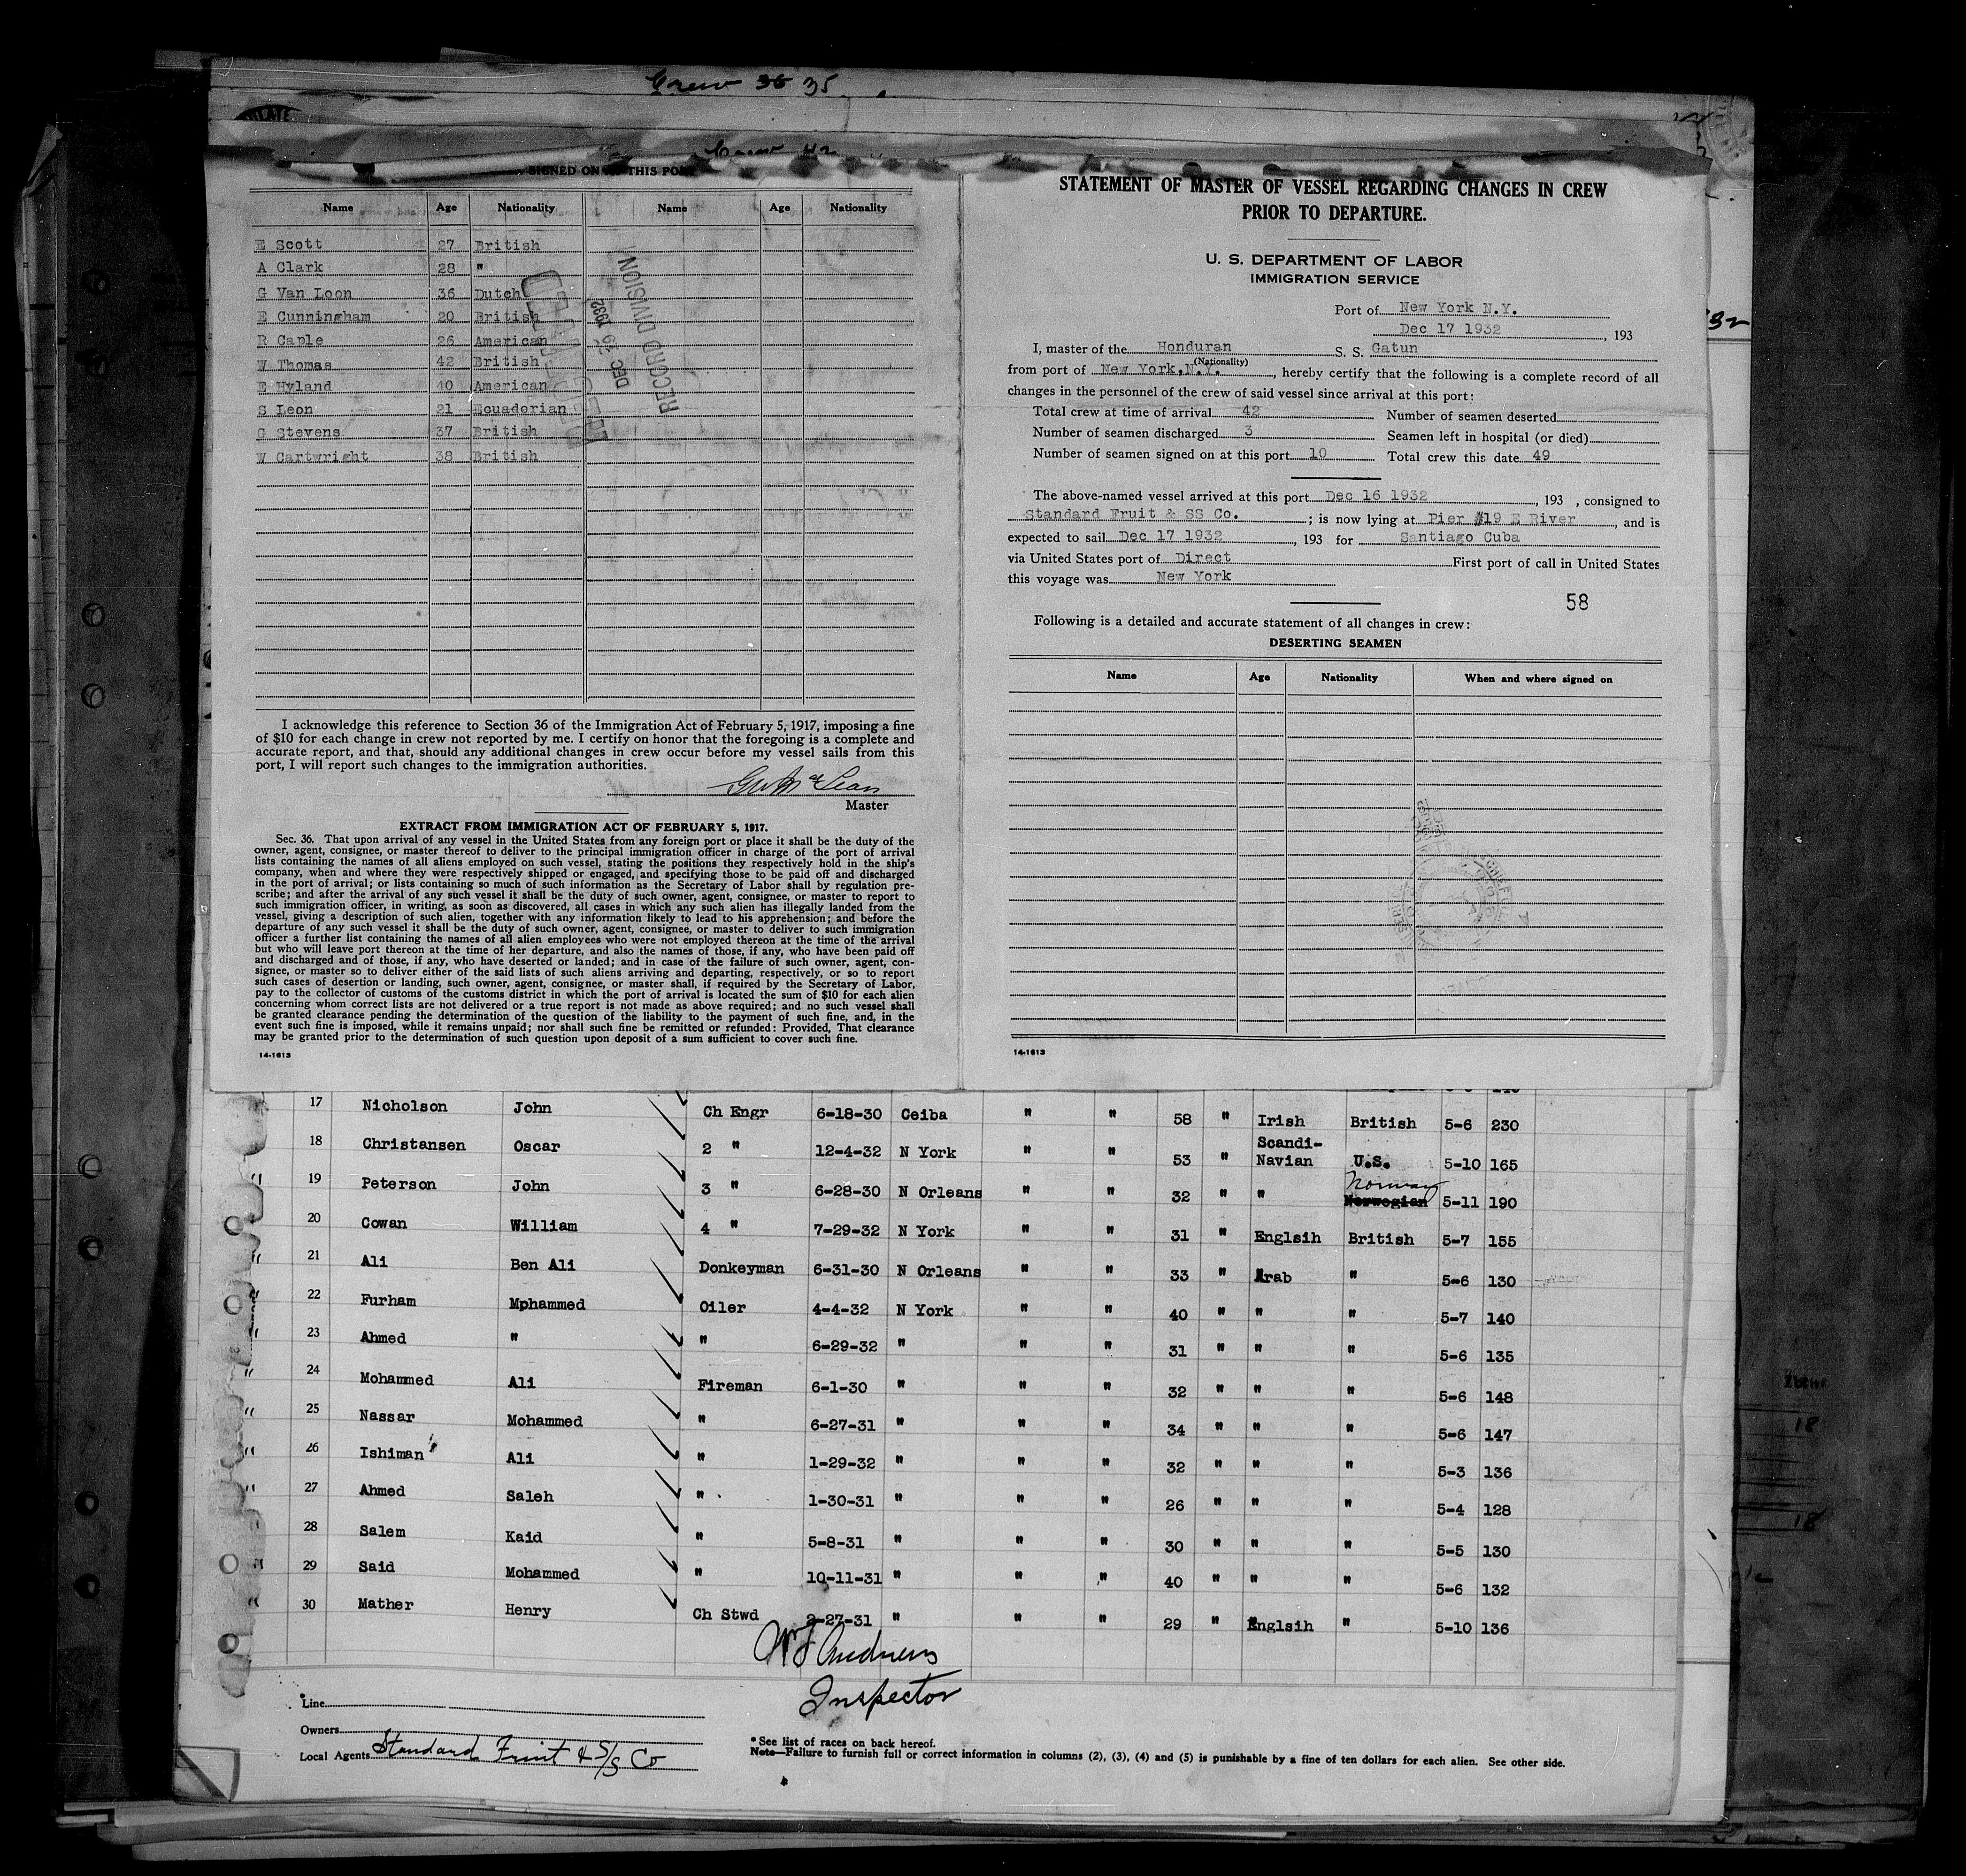 Crew 36 35
SIGNED ON AT THIS PORT
Name Age Nationality Name Age Nationality
E Scott 27 British
A Clark 28 "
G Van Loon 36 Dutch
E Cunningham 20 British
R Caple 26 American
W Thomas 42 British
E Hyland 40 American
S Leon 21 Ecuadorian
G Stevens 37 British
W Cartwright 38 British
DEC 19 1932
RECORD DIVISION
I acknowledge this reference to Section 36 of the Immigration Act of February 5, 1917, imposing a fine
of $10 for each change in crew not reported by me. I certify on honor that the foregoing is a complete and
accurate report, and that, should any additional changes in crew occur before my vessel sails from this
port, I will report such changes to the immigration authorities.
Master
EXTRACT FROM IMMIGRATION ACT OF FEBRUARY 5, 1917.
Sec. 36. That upon arrival of any vessel in the United States from any foreign port or place it shall be the duty of the
owner, agent, consignee, or master thereof to deliver to the principal immigration officer in charge of the port of arrival
lists containing the names of all aliens employed on such vessel, stating the positions they respectively hold in the ship's
company, when and where they were respectively shipped or engaged, and specifying those to be paid off and discharged
in the port of arrival; or lists containing so much of such information as the Secretary of Labor shall by regulation pre-
scribe; and after the arrival of any such vessel it shall be the duty of such owner, agent, consignee, or master to report to
such immigration officer, in writing, as soon as discovered, all cases in which any such alien has illegally landed from the
vessel, giving a description of such alien, together with any information likely to lead to his apprehension; and before the
departure of any such vessel it shall be the duty of such owner, agent, consignee, or master to deliver to such immigration
officer a further list containing the names of all alien employees who were not employed thereon at the time of the arrival
but who will leave port thereon at the time of her departure, and also the names of those, if any, who have been paid off
and discharged and of those, if any, who have deserted or landed; and in case of the failure of such owner, agent, con-
signee, or master so to deliver either of the said lists of such aliens arriving and departing, respectively, or so to report
such cases of desertion or landing, such owner, agent, consignee, or master shall, if required by the Secretary of Labor,
pay to the collector of customs of the customs district in which the port of arrival is located the sum of $10 for each alien
concerning whom correct lists are not delivered or a true report is not made as above required; and no such vessel shall
be granted clearance pending the determination of the question of the liability to the payment of such fine, and, in the
event such fine is imposed, while it remains unpaid; nor shall such fine be remitted or refunded: Provided, That clearance
may be granted prior to the determination of such question upon deposit of a sum sufficient to cover such fine.
14-1613
STATEMENT OF MASTER OF VESSEL REGARDING CHANGES IN CREW
PRIOR TO DEPARTURE.
U. S. DEPARTMENT OF LABOR
IMMIGRATION SERVICE
Port of New York N.Y.
Dec 17 1932, 193
I, master of the Honduran S. S. Gatun
(Nationality)
from port of New York,N.Y., hereby certify that the following is a complete record of all
changes in the personnel of the crew of said vessel since arrival at this port:
Total crew at time of arrival 42 Number of seamen deserted
Number of seamen discharged 3 Seamen left in hospital (or died)
Number of seamen signed on at this port 10 Total crew this date 49
The above-named vessel arrived at this port Dec 16 1932, 193 , consigned to
Standard Fruit & SS Co. ; is now lying at Pier #19 E River, and is
expected to sail Dec 17 1932, 193 for Santiago Cuba
via United States port of Direct First port of call in United States
this voyage was New York
58
Following is a detailed and accurate statement of all changes in crew:
DESERTING SEAMEN
Name Age Nationality When and where signed on
14-1613
17 Nicholson John Ch Engr 6-18-30 Ceiba " " 58 " Irish British 5-6 230
18 Christansen Oscar 2 " 12-4-32 N York " " 53 " Scandi-Navian U.S. 5-10 165
19 Peterson John 3 " 6-28-30 N Orleans " " 32 " " Norwegian Norway 5-11 190
20 Cowan William 4 " 7-29-32 N York " " 31 " Englsih British 5-7 155
21 Ali Ben Ali Donkeyman 6-31-30 N Orleans " " 33 " Arab " 5-6 130
22 Furham Mphammed Oiler 4-4-32 N York " " 40 " " " 5-7 140
23 Ahmed " " 6-29-32 " " " 31 " " " 5-6 135
24 Mohammed Ali Fireman 6-1-30 " " " 32 " " " 5-6 148
25 Nassar Mohammed " 6-27-31 " " " 34 " " " 5-6 147
26 Ishiman Ali " 1-29-32 " " " 32 " " " 5-3 136
27 Ahmed Saleh " 1-30-31 " " " 26 " " " 5-4 128
28 Salem Kaid " 5-8-31 " " " 30 " " " 5-5 130
29 Said Mohammed " 10-11-31 " " " 40 " " " 5-6 132
30 Mather Henry Ch Stwd 2-27-31 " " " 29 " Englsih " 5-10 136
Andrews
Inspector
Line
Owners
Local Agents Standard Fruit & S/S Co
* See list of races on back hereof.
Note—Failure to furnish full or correct information in columns (2), (3), (4) and (5) is punishable by a fine of ten dollars for each alien. See other side.